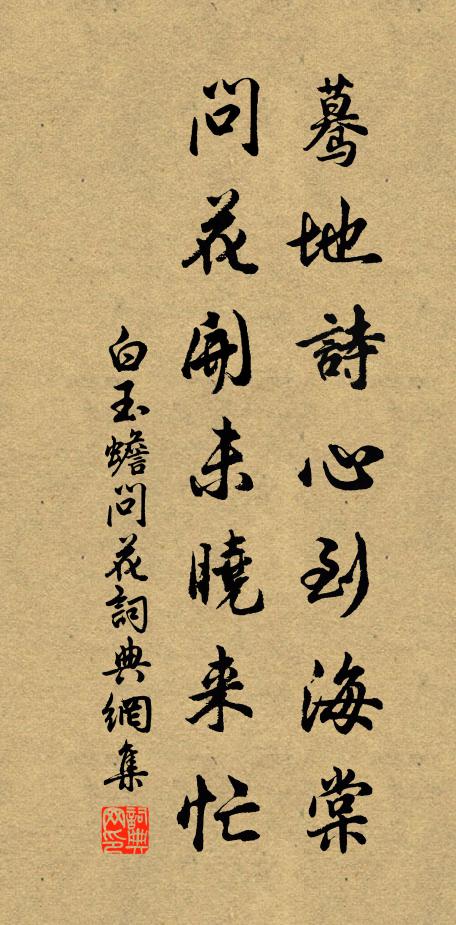 驀地詩心到海棠
問花開未曉来忙
白玉蟾問花詞典網集
詞典网印